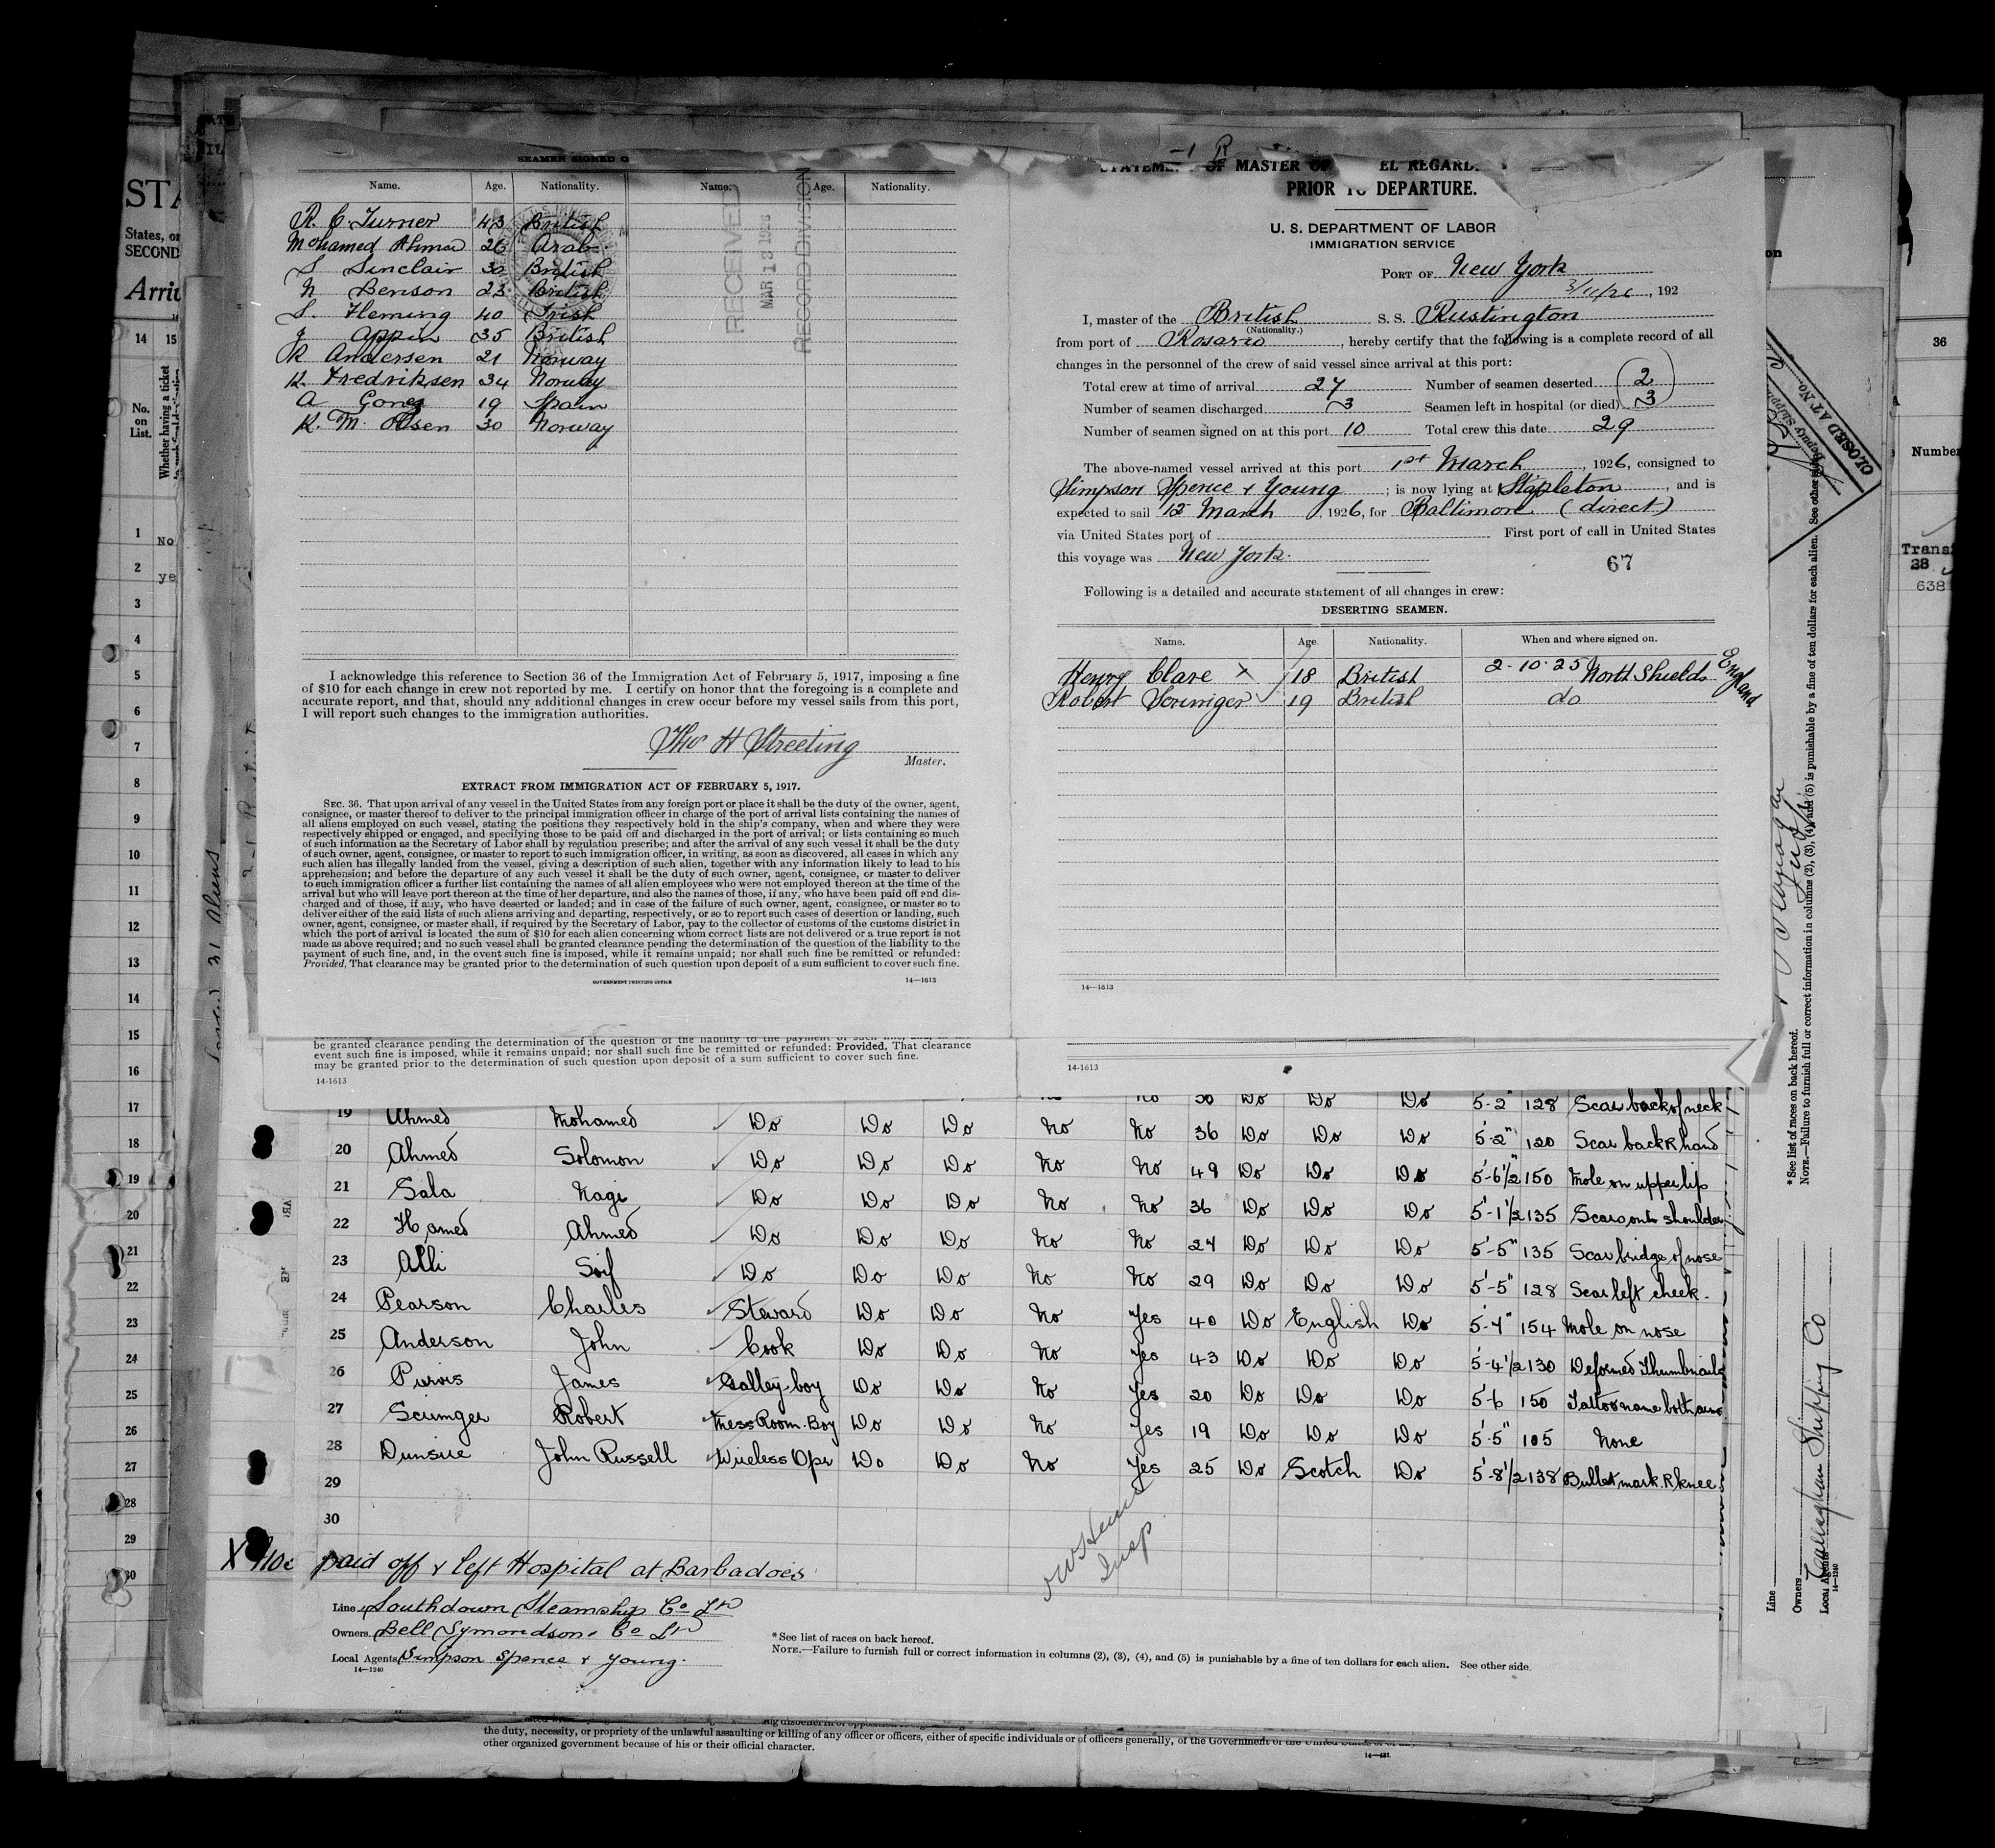 SEAMEN SIGNED O
Name. Age. Nationality. Name. Age. Nationality.
R. C. Turner 43 British
Mohamed Ahmed 26 Arab
S Sinclair 30 British
N Benson 23 British
S. Fleming 40 Irish
J Appin 35 British
R Andersen 21 Norway
K. Fredriksen 34 Norway
A Gonez 19 Spain
K. M. Olsen 30 Norway
RECEIVED
MAR 13 1926
RECORD DIVISION
I acknowledge this reference to Section 36 of the Immigration Act of February 5, 1917, imposing a fine
of $10 for each change in crew not reported by me. I certify on honor that the foregoing is a complete and
accurate report, and that, should any additional changes in crew occur before my vessel sails from this port,
I will report such changes to the immigration authorities.
Tho H Streeting
Master.
EXTRACT FROM IMMIGRATION ACT OF FEBRUARY 5, 1917.
SEC. 36. That upon arrival of any vessel in the United States from any foreign port or place it shall be the duty of the owner, agent,
consignee, or master thereof to deliver to the principal immigration officer in charge of the port of arrival lists containing the names of
all aliens employed on such vessel, stating the positions they respectively hold in the ship's company, when and where they were
respectively shipped or engaged, and specifying those to be paid off and discharged in the port of arrival; or lists containing so much
of such information as the Secretary of Labor shall by regulation prescribe; and after the arrival of any such vessel it shall be the duty
of such owner, agent, consignee, or master to report to such immigration officer, in writing, as soon as discovered, all cases in which any
such alien has illegally landed from the vessel, giving a description of such alien, together with any information likely to lead to his
apprehension; and before the departure of any such vessel it shall be the duty of such owner, agent, consignee, or master to deliver
to such immigration officer a further list containing the names of all alien employees who were not employed thereon at the time of the
arrival but who will leave port thereon at the time of her departure, and also the names of those, if any, who have been paid off and dis-
charged and of those, if any, who have deserted or landed; and in case of the failure of such owner, agent, consignee, or master so to
deliver either of the said lists of such aliens arriving and departing, respectively, or so to report such cases of desertion or landing, such
owner, agent, consignee, or master shall, if required by the Secretary of Labor, pay to the collector of customs of the customs district in
which the port of arrival is located the sum of $10 for each alien concerning whom correct lists are not delivered or a true report is not
made as above required; and no such vessel shall be granted clearance pending the determination of the question of the liability to the
payment of such fine, and, in the event such fine is imposed, while it remains unpaid; nor shall such fine be remitted or refunded:
Provided, That clearance may be granted prior to the determination of such question upon deposit of a sum sufficient to cover such fine.
GOVERNMENT PRINTING OFFICE 14—1613
OF MASTER OF EL REGARD
PRIOR TO DEPARTURE.
U. S. DEPARTMENT OF LABOR
IMMIGRATION SERVICE
PORT OF New York
3/11/26, 192
I, master of the British S. S. Rustington
(Nationality.)
from port of Rosario, hereby certify that the following is a complete record of all
changes in the personnel of the crew of said vessel since arrival at this port:
Total crew at time of arrival 27 Number of seamen deserted 2
Number of seamen discharged 3 Seamen left in hospital (or died) 3
Number of seamen signed on at this port 10 Total crew this date 29
The above-named vessel arrived at this port 1st March, 1926, consigned to
Simpson Spence & Young; is now lying at Stapleton, and is
expected to sail 12 March, 1926, for Baltimore (direct)
via United States port of First port of call in United States
this voyage was New York.
67
Following is a detailed and accurate statement of all changes in crew:
DESERTING SEAMEN.
Name. Age. Nationality. When and where signed on.
Henry Clare x 18 British 2-10-25 North Shields England
Robert Scrimger 19 British do
14—1613
be granted clearance pending the determination of the question of the liability to the payment of such fine, and, in the
event such fine is imposed, while it remains unpaid; nor shall such fine be remitted or refunded: Provided, That clearance
may be granted prior to the determination of such question upon deposit of a sum sufficient to cover such fine.
14-1613
14-1613
Do Do Do 5-2" 128 Scar back of neck
19 Ahmed Mohamed Do Do Do No No 36 Do Do Do 5-2" 120 Scar back R hand
20 Ahmed Solomon Do Do Do No No 49 Do Do Do 5'-6½" 150 Mole on upper lip
21 Sala Nagi Do Do Do No No 36 Do Do Do 5'-1½ 135 Scars on shoulder
22 Hamed Ahmed Do Do Do No No 27 Do Do Do 5'-5" 135 Scar bridge of nose
23 Alli Soif Do Do Do No No 29 Do Do Do 5'-5" 128 Scar left cheek.
24 Pearson Charles Steward Do Do No Yes 40 Do English Do 5'-7" 154 Mole on nose
25 Anderson John Cook Do Do No Yes 43 Do Do Do 5'-4½ 130 Deformed Thumbnails
26 Purvis James Galley boy Do Do No Yes 20 Do Do Do 5'6 150 Tattoo name both arms
27 Scrimger Robert Mess Room Boy Do Do No Yes 19 Do Do Do 5'-5" 105 None
28 Dunsire John Russell Wireless Opr Do Do No Yes 25 Do Scotch Do 5'-8½ 138 Bullet mark R knee
29
30
Insp
paid off & left Hospital at Barbadoes
Line Southdown Steamship Co Ltd
Owners Bell Symondson & Co Ltd
Local Agents Simpson Spence & Young.
14—1240
*See list of races on back hereof.
NOTE.—Failure to furnish full or correct information in columns (2), (3), (4), and (5) is punishable by a fine of ten dollars for each alien. See other side.
the duty, necessity, or propriety of the unlawful assaulting or killing of any officer or officers, either of specific individuals or of officers generally, of the Government of the United States or
other organized government because of his or their official character.
STA
States, or
SECOND
Arriv
14 15
No. on List.
Whether having a ticket
1 No
2 ye
3
4
5
6
7
8
9
10
11
12
13
14
15
16
17
18
19
20
21
22
23
24
25
26
27
28
29
30
31 Aliens
CLOSED AT NO.
*See list of races on back hereof.
NOTE.—Failure to furnish full or correct information in columns (2), (3), (4), and (5) is punishable by a fine of ten dollars for each alien. See other
Line
Owners
Local Agents Callaghan Shipping Co
14—1240
36
Number
Trans
38
638